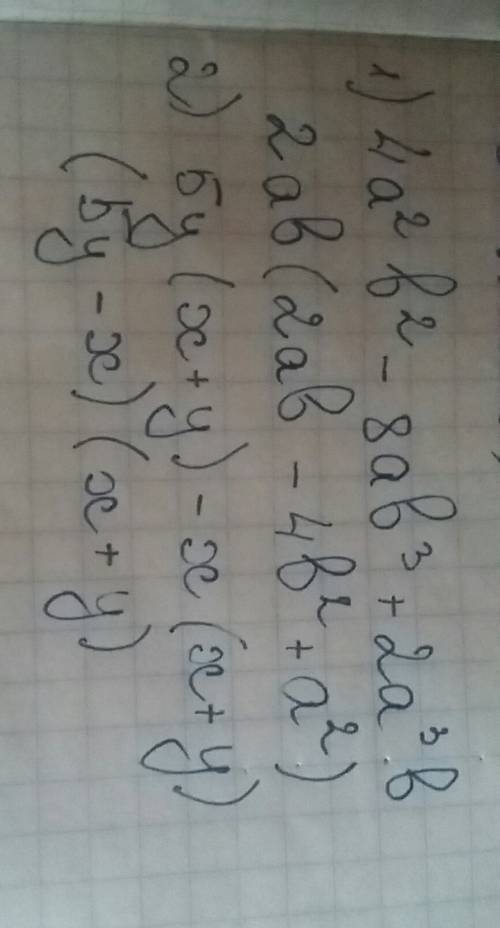 1) 4a²b² - 8ab³ + 2a³b
2ab(2ab - 4b² + a²)
2) 5y(x+y) - x(x+y)
(5y - x)(x+y)